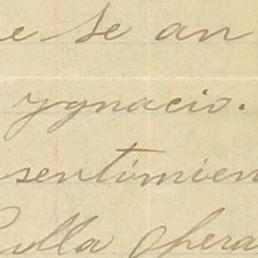 e se an
ygnacio.
sentimien
lla opera